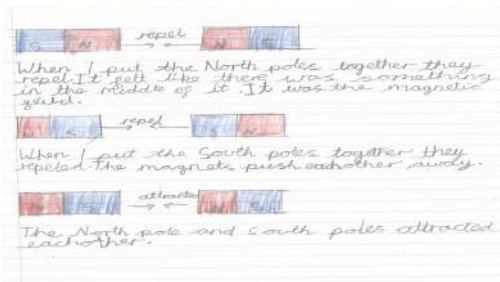 repel
S N N S
When I put the North poles together they
repel. It felt like there was something
in the middle of it. It was the magnetic
feild.
repel
N S S N
When I put the South poles together they
repeled. The magnets push eachother away.
attracted
N S N S
The North pole and South poles attracted
eachother.